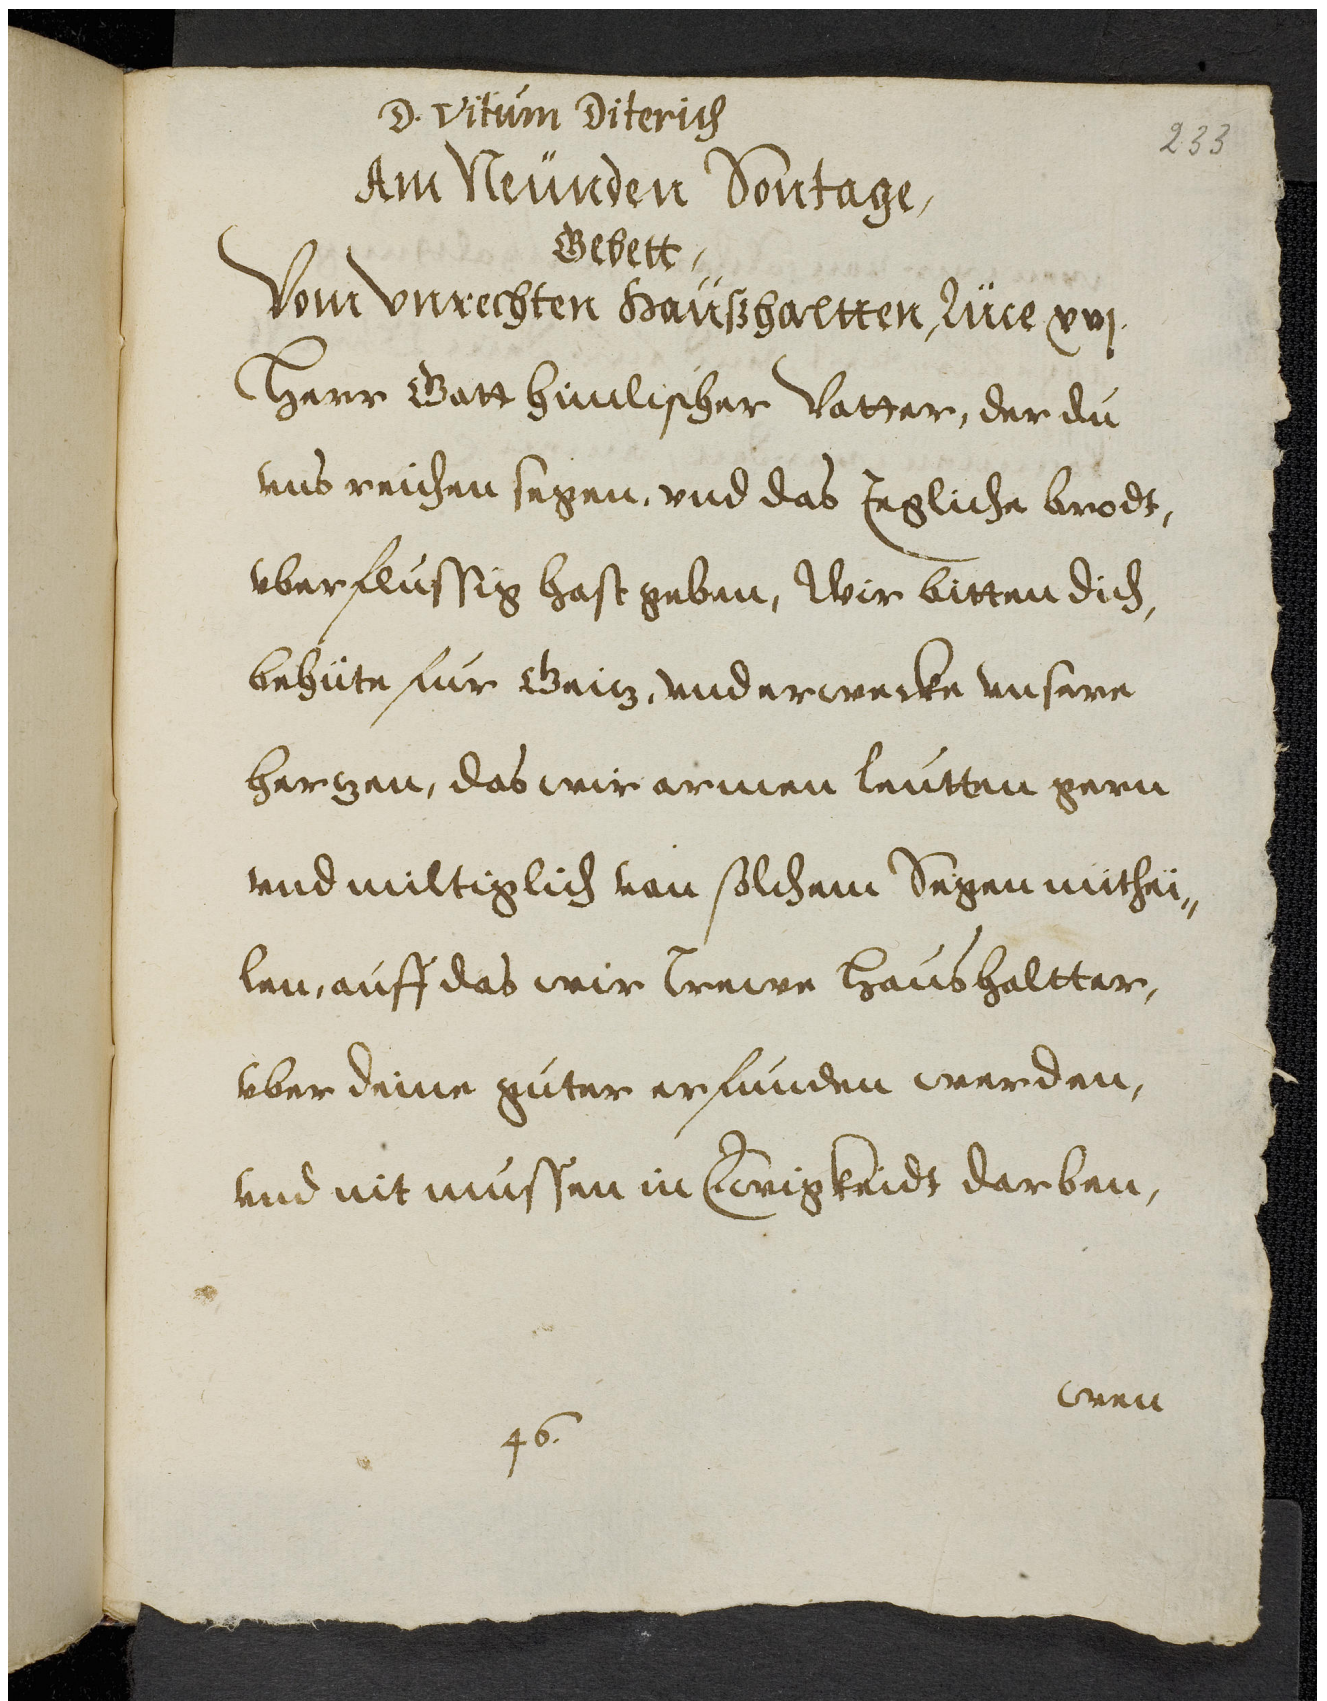 D. Vitum Diterich
233
Am Neünden Sontage,
Gebett,
Vom Vnrechten Haüßhaltten, Lüce xvj.
Herr Gott himlischer Vatter, der du
vns reichen segen, vnd das Tegliche brodt,
vberflussig hast geben, Wir bitten dich,
behüte fur Geitz, vnd erwecke vnsere
hertzen, das wir armen leutten gern
vnd miltiglich von solchem Segen mithei„
len, auff das wir Trewe Haushaltter,
vber deine guter erfunden werden,
vnd nit mussen in Ewigkeidt darben,
wen
46.